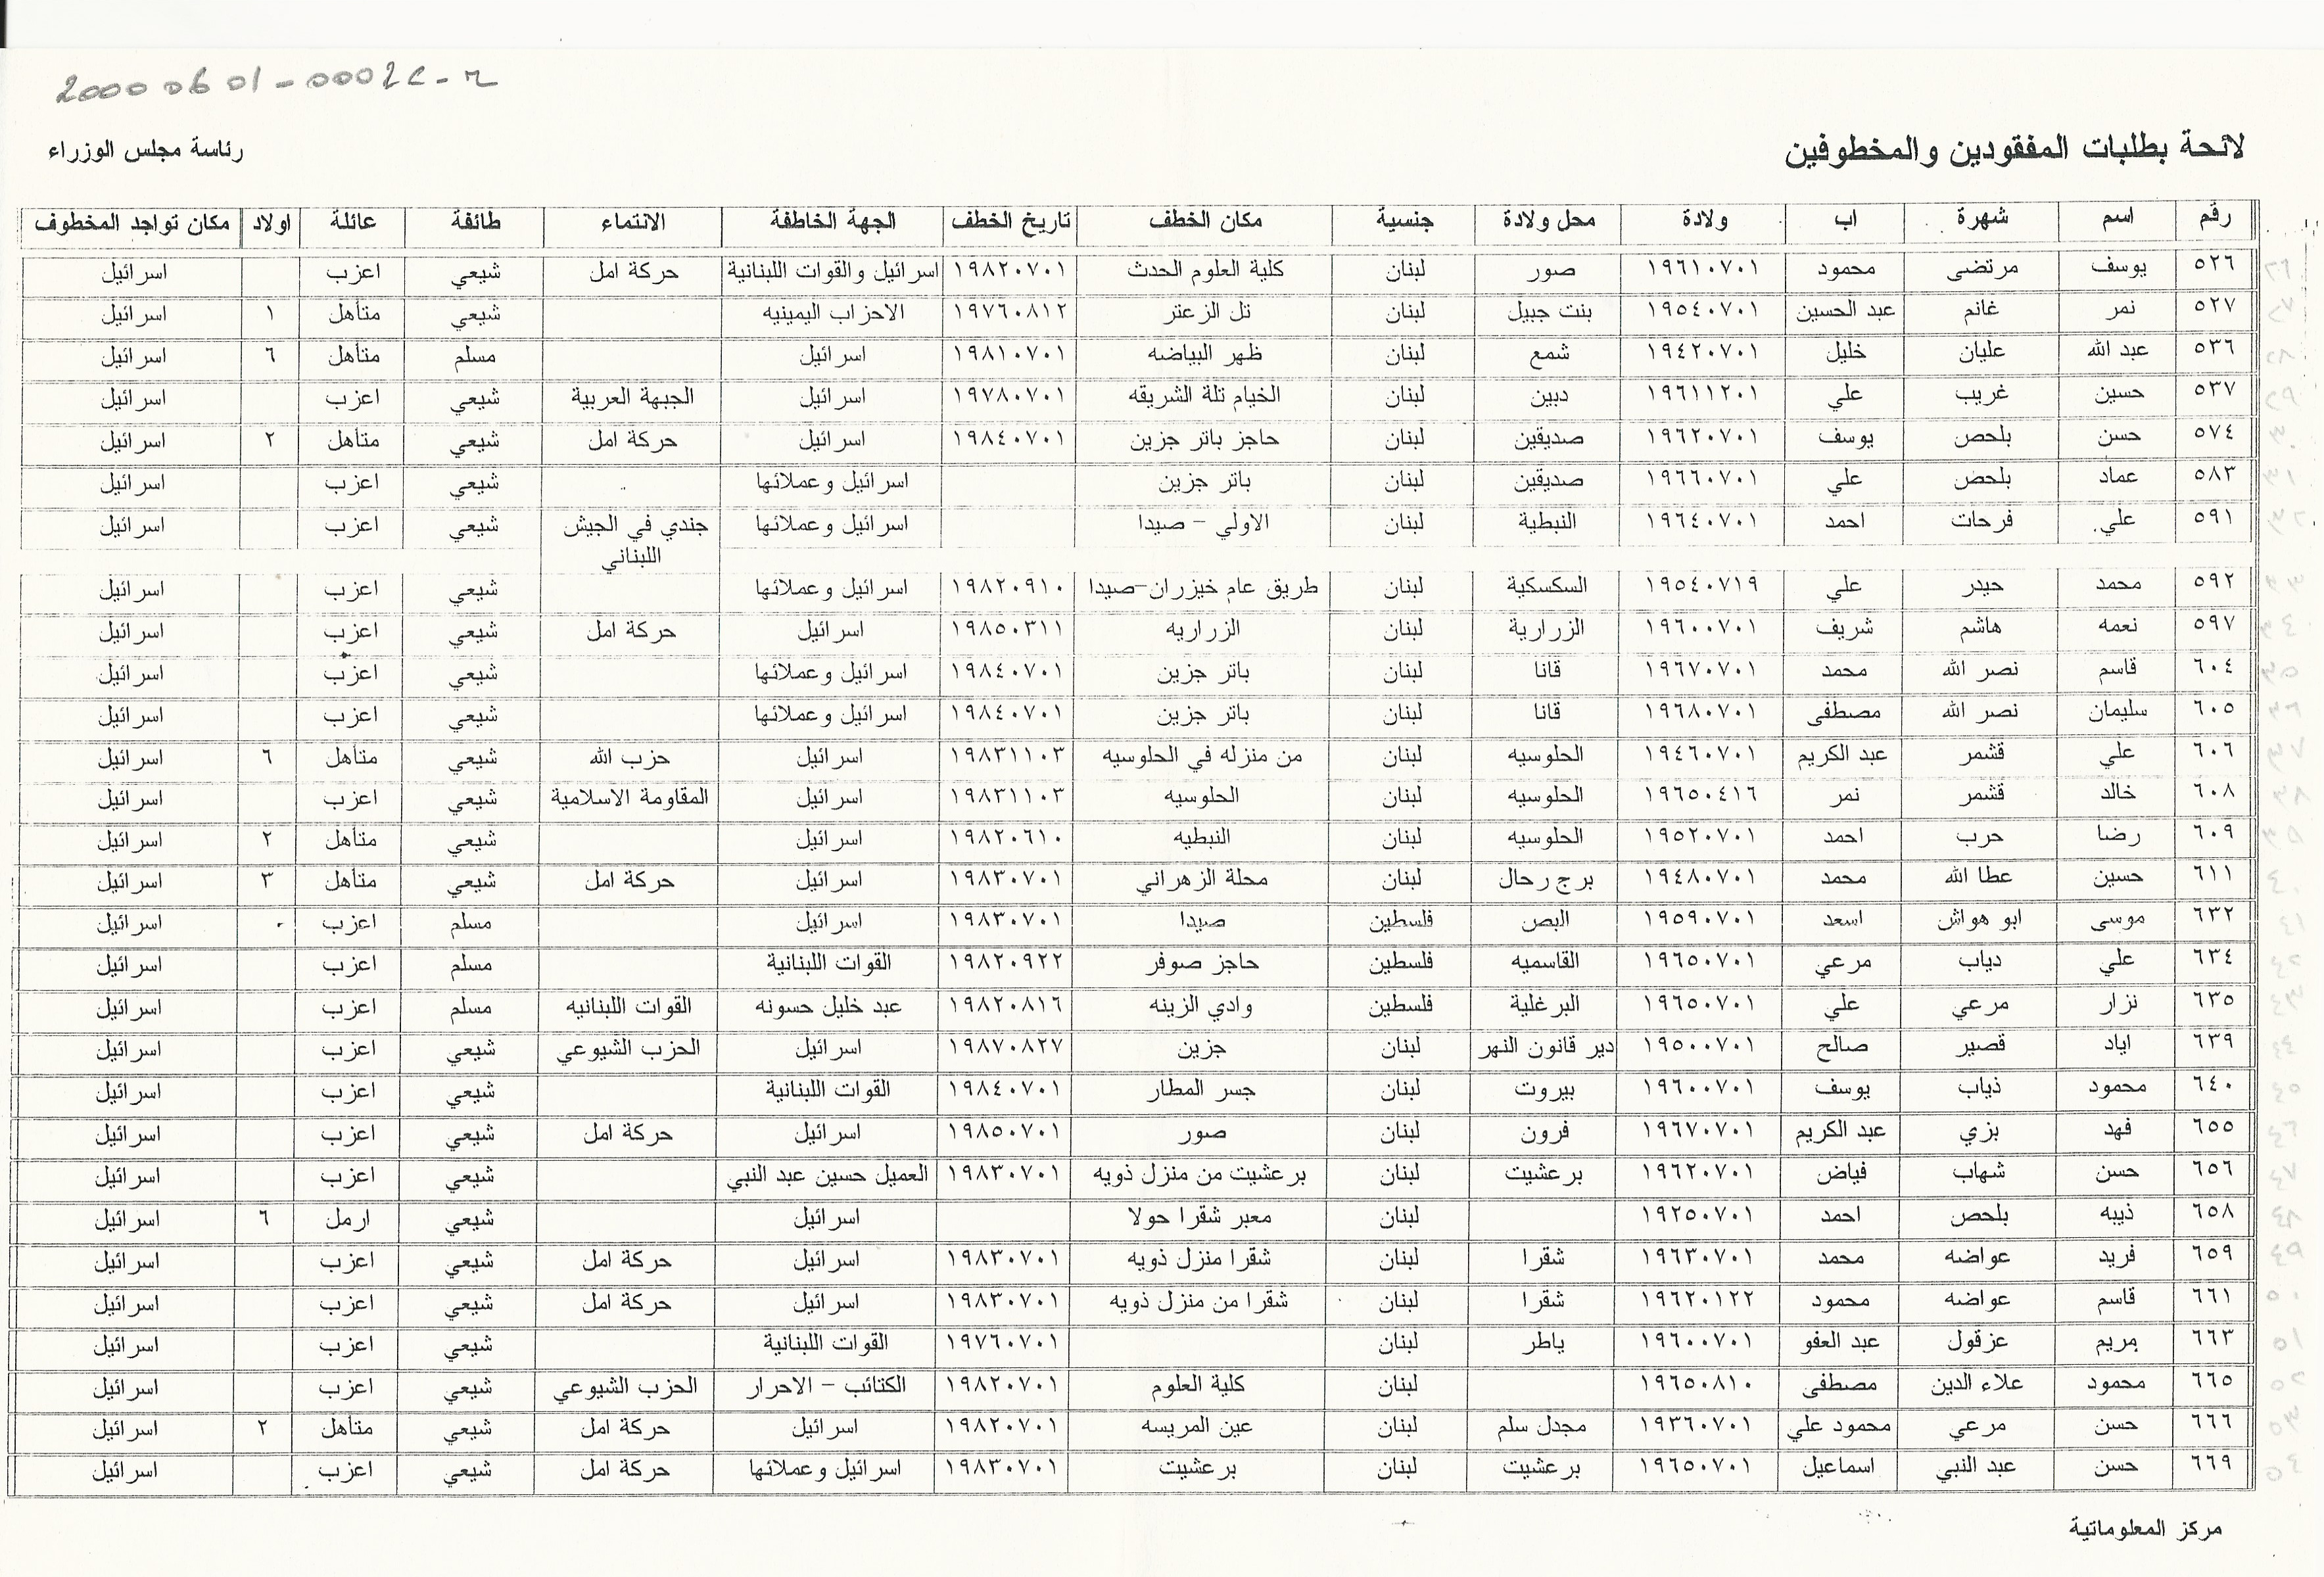 20000601-0002C-r
لائحة بطلبات المفقودين والمخطوفين
رئاسة مجلس الوزراء
رقم اسم شهرة اب ولادة محل ولادة جنسية مكان الخطف تاريخ الخطف الجهة الخاطفة الانتماء طائفة عائلة اولاد مكان تواجد المخطوف
٥٢٦ يوسف مرتضى محمود ١٩٦١٠٧٠١ صور لبنان كلية العلوم الحدث ١٩٨٢٠٧٠١ اسرائيل والقوات اللبنانية حركة امل شيعي اعزب اسرائيل
٥٢٧ نمر غانم عبد الحسين ١٩٥٤٠٧٠١ بنت جبيل لبنان تل الزعتر ١٩٧٦٠٨١٢ الاحزاب اليمينيه شيعي متأهل ١ اسرائيل
٥٣٦ عبد الله عليان خليل ١٩٤٢٠٧٠١ شمع لبنان ظهر البياضه ١٩٨١٠٧٠١ اسرائيل مسلم متأهل ٦ اسرائيل
٥٣٧ حسين غريب علي ١٩٦١١٢٠١ دبين لبنان الخيام تلة الشريقه ١٩٧٨٠٧٠١ اسرائيل الجبهة العربية شيعي اعزب اسرائيل
٥٧٤ حسن بلحص يوسف ١٩٦٢٠٧٠١ صديقين لبنان حاجز باتر جزين ١٩٨٤٠٧٠١ اسرائيل حركة امل شيعي متأهل ٢ اسرائيل
٥٨٣ عماد بلحص علي ١٩٦٦٠٧٠١ صديقين لبنان باتر جزين اسرائيل وعملائها شيعي اعزب اسرائيل
٥٩١ علي فرحات احمد ١٩٦٤٠٧٠١ النبطية لبنان الاولي - صيدا اسرائيل وعملائها جندي في الجيش شيعي اعزب اسرائيل
اللبناني
٥٩٢ محمد حيدر علي ١٩٥٤٠٧١٩ السكسكية لبنان طريق عام خيزران-صيدا ١٩٨٢٠٩١٠ اسرائيل وعملائها شيعي اعزب اسرائيل
٥٩٧ نعمه هاشم شريف ١٩٦٠٠٧٠١ الزرارية لبنان الزراريه ١٩٨٥٠٣١١ اسرائيل حركة امل شيعي اعزب اسرائيل
٦٠٤ قاسم نصر الله محمد ١٩٦٧٠٧٠١ قانا لبنان باتر جزين ١٩٨٤٠٧٠١ اسرائيل وعملائها شيعي اعزب اسرائيل
٦٠٥ سليمان نصر الله مصطفى ١٩٦٨٠٧٠١ قانا لبنان باتر جزين ١٩٨٤٠٧٠١ اسرائيل وعملائها شيعي اعزب اسرائيل
٦٠٦ علي قشمر عبد الكريم ١٩٤٦٠٧٠١ الحلوسيه لبنان من منزله في الحلوسيه ١٩٨٣١١٠٣ اسرائيل حزب الله شيعي متأهل ٦ اسرائيل
٦٠٨ خالد قشمر نمر ١٩٦٥٠٤١٦ الحلوسيه لبنان الحلوسيه ١٩٨٣١١٠٣ اسرائيل المقاومة الاسلامية شيعي اعزب اسرائيل
٦٠٩ رضا حرب احمد ١٩٥٢٠٧٠١ الحلوسيه لبنان النبطيه ١٩٨٢٠٦١٠ اسرائيل شيعي متأهل ٢ اسرائيل
٦١١ حسين عطا الله محمد ١٩٤٨٠٧٠١ برج رحال لبنان محلة الزهراني ١٩٨٣٠٧٠١ اسرائيل حركة امل شيعي متأهل ٣ اسرائيل
٦٣٢ موسى ابو هواش اسعد ١٩٥٩٠٧٠١ البص فلسطين صيدا ١٩٨٣٠٧٠١ اسرائيل مسلم اعزب اسرائيل
٦٣٤ علي دياب مرعي ١٩٦٥٠٧٠١ القاسميه فلسطين حاجز صوفر ١٩٨٢٠٩٢٢ القوات اللبنانية مسلم اعزب اسرائيل
٦٣٥ نزار مرعي علي ١٩٦٥٠٧٠١ البرغلية فلسطين وادي الزينه ١٩٨٢٠٨١٦ عبد خليل حسونه القوات اللبنانيه مسلم اعزب اسرائيل
٦٣٩ اياد قصير صالح ١٩٥٠٠٧٠١ دير قانون النهر لبنان جزين ١٩٨٧٠٨٢٧ اسرائيل الحزب الشيوعي شيعي اعزب اسرائيل
٦٤٠ محمود ذياب يوسف ١٩٦٠٠٧٠١ بيروت لبنان جسر المطار ١٩٨٤٠٧٠١ القوات اللبنانية شيعي اعزب اسرائيل
٦٥٥ فهد بزي عبد الكريم ١٩٦٧٠٧٠١ فرون لبنان صور ١٩٨٥٠٧٠١ اسرائيل حركة امل شيعي اعزب اسرائيل
٦٥٦ حسن شهاب فياض ١٩٦٢٠٧٠١ برعشيت لبنان برعشيت من منزل ذويه ١٩٨٣٠٧٠١ العميل حسين عبد النبي شيعي اعزب اسرائيل
٦٥٨ ذيبه بلحص احمد ١٩٢٥٠٧٠١ لبنان معبر شقرا حولا اسرائيل شيعي ارمل ٦ اسرائيل
٦٥٩ فريد عواضه محمد ١٩٦٣٠٧٠١ شقرا لبنان شقرا منزل ذويه ١٩٨٣٠٧٠١ اسرائيل حركة امل شيعي اعزب اسرائيل
٦٦١ قاسم عواضه محمود ١٩٦٢٠١٢٢ شقرا لبنان شقرا من منزل ذويه ١٩٨٣٠٧٠١ اسرائيل حركة امل شيعي اعزب اسرائيل
٦٦٣ مريم عزقول عبد العفو ١٩٦٠٠٧٠١ ياطر لبنان ١٩٧٦٠٧٠١ القوات اللبنانية شيعي اعزب اسرائيل
٦٦٥ محمود علاء الدين مصطفى ١٩٦٥٠٨١٠ لبنان كلية العلوم ١٩٨٢٠٧٠١ الكتائب - الاحرار الحزب الشيوعي شيعي اعزب اسرائيل
٦٦٦ حسن مرعي محمود علي ١٩٣٦٠٧٠١ مجدل سلم لبنان عين المريسه ١٩٨٢٠٧٠١ اسرائيل حركة امل شيعي متأهل ٢ اسرائيل
٦٦٩ حسن عبد النبي اسماعيل ١٩٦٥٠٧٠١ برعشيت لبنان برعشيت ١٩٨٣٠٧٠١ اسرائيل وعملائها حركة امل شيعي اعزب اسرائيل
مركز المعلوماتية